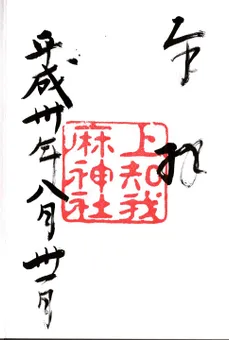 奉拝
上知我
麻神社
平成卅年八月卅一日